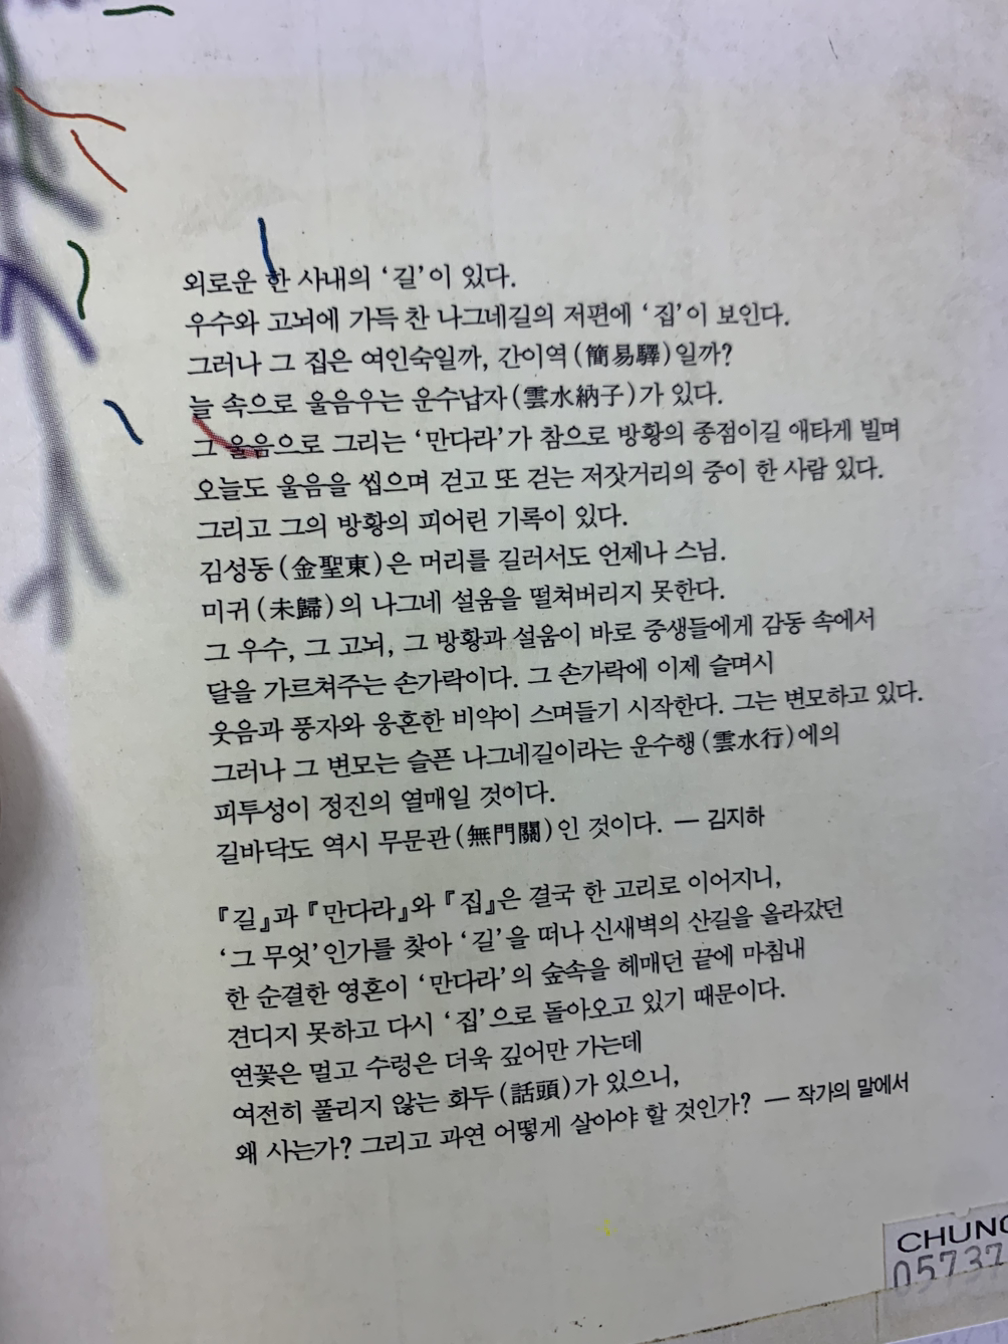 외로운 한 사내의 ‘길’이 있다.
우수와 고뇌에 가득 찬 나그네길의 저편에 ‘집’이 보인다.
그러나 그 집은 여인숙일까, 간이역(簡易驛)일까?
늘 속으로 울음우는 운수납자(雲水納子)가 있다.
그 울음으로 그리는 ‘만다라’가 참으로 방황의 종점이길 애타게 빌며
오늘도 울음을 씹으며 걷고 또 걷는 저잣거리의 중이 한 사람 있다.
그리고 그의 방황의 피어린 기록이 있다.
김성동(金聖東)은 머리를 길러서도 언제나 스님.
미귀(未歸)의 나그네 설움을 떨쳐버리지 못한다.
그 우수, 그 고뇌, 그 방황과 설움이 바로 중생들에게 감동 속에서
달을 가르쳐주는 손가락이다. 그 손가락에 이제 슬며시
웃음과 풍자와 웅혼한 비약이 스며들기 시작한다. 그는 변모하고 있다.
그러나 그 변모는 슬픈 나그네길이라는 운수행(雲水行)에의
피투성이 정진의 열매일 것이다.
길바닥도 역시 무문관(無門關)인 것이다. — 김지하
『길』과 『만다라』와 『집』은 결국 한 고리로 이어지니,
‘그 무엇’인가를 찾아 ‘길’을 떠나 신새벽의 산길을 올라갔던
한 순결한 영혼이 ‘만다라’의 숲속을 헤매던 끝에 마침내
견디지 못하고 다시 ‘집’으로 돌아오고 있기 때문이다.
연꽃은 멀고 수렁은 더욱 깊어만 가는데
여전히 풀리지 않는 화두(話頭)가 있으니,
왜 사는가? 그리고 과연 어떻게 살아야 할 것인가? — 작가의 말에서
CHUNG
05737